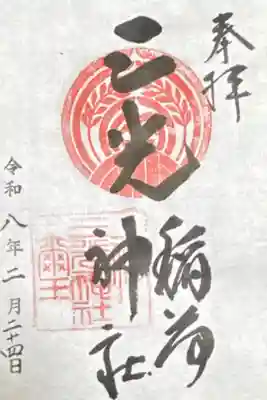 奉拝
三光稲荷神社
令和八年二月二十四日